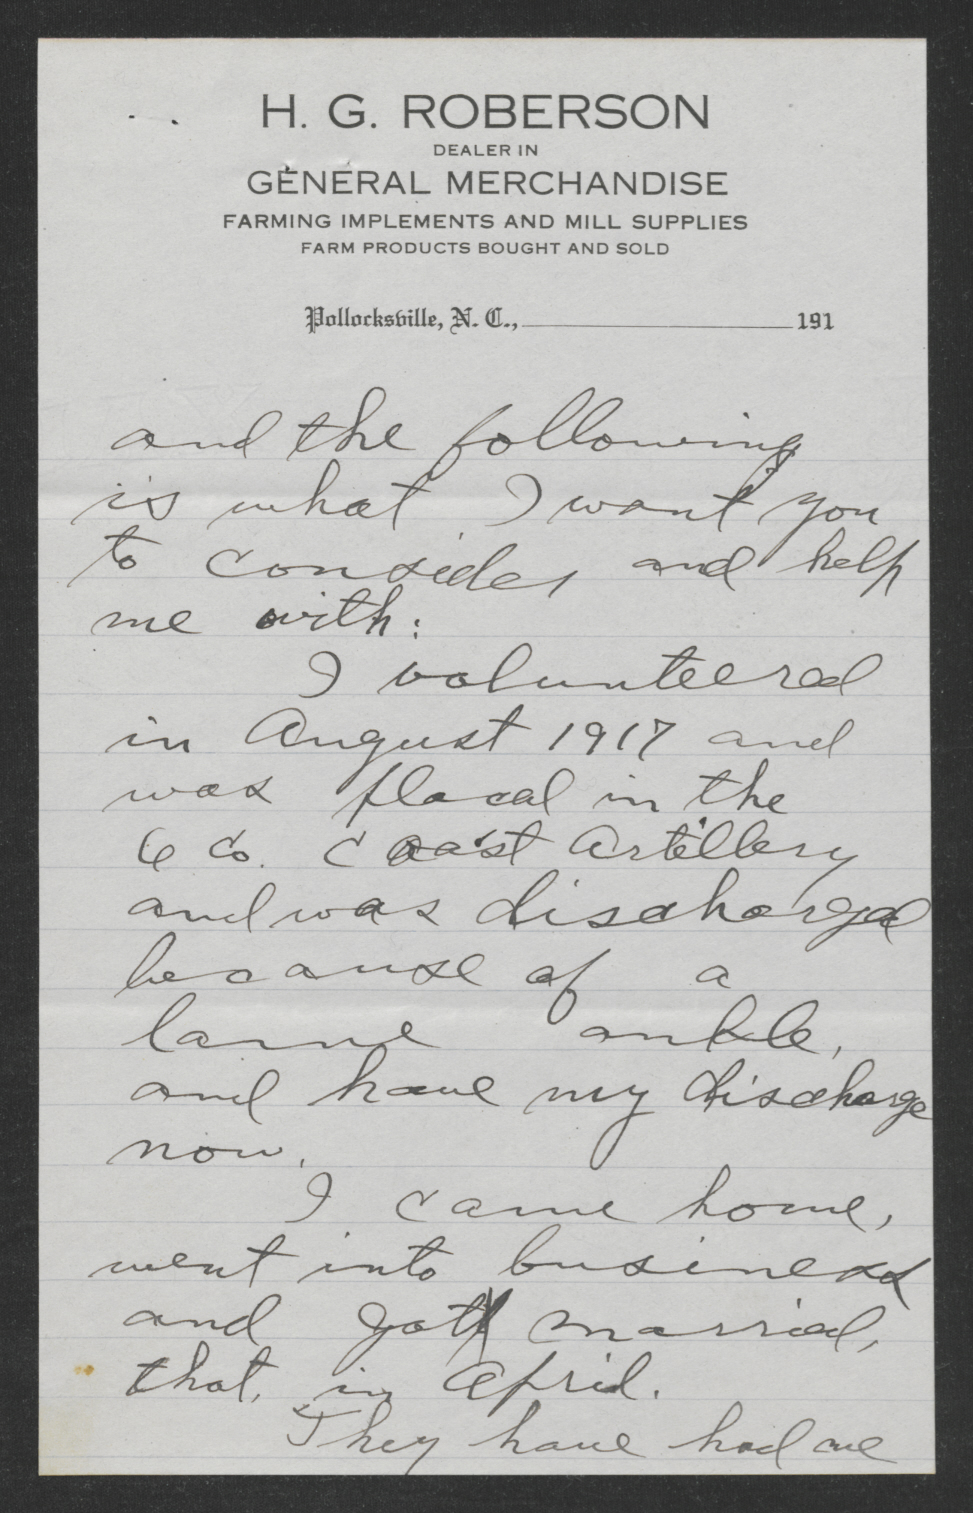 H. G. ROBERSON
DEALER IN
GENERAL MERCHANDISE
FARMING IMPLEMENTS AND MILL SUPPLIES
FARM PRODUCTS BOUGHT AND SOLD
Pollocksville, N. C., 191
and the following
is what I want you
to consider, and help
me with:
I volunteered
in August 1917 and
was placed in the
6 Co. Coast Artillery
and was discharged
because of a
lame ankle,
and have my discharge
now.
I came home,
went into business
and got married,
that, in April.
They have had me